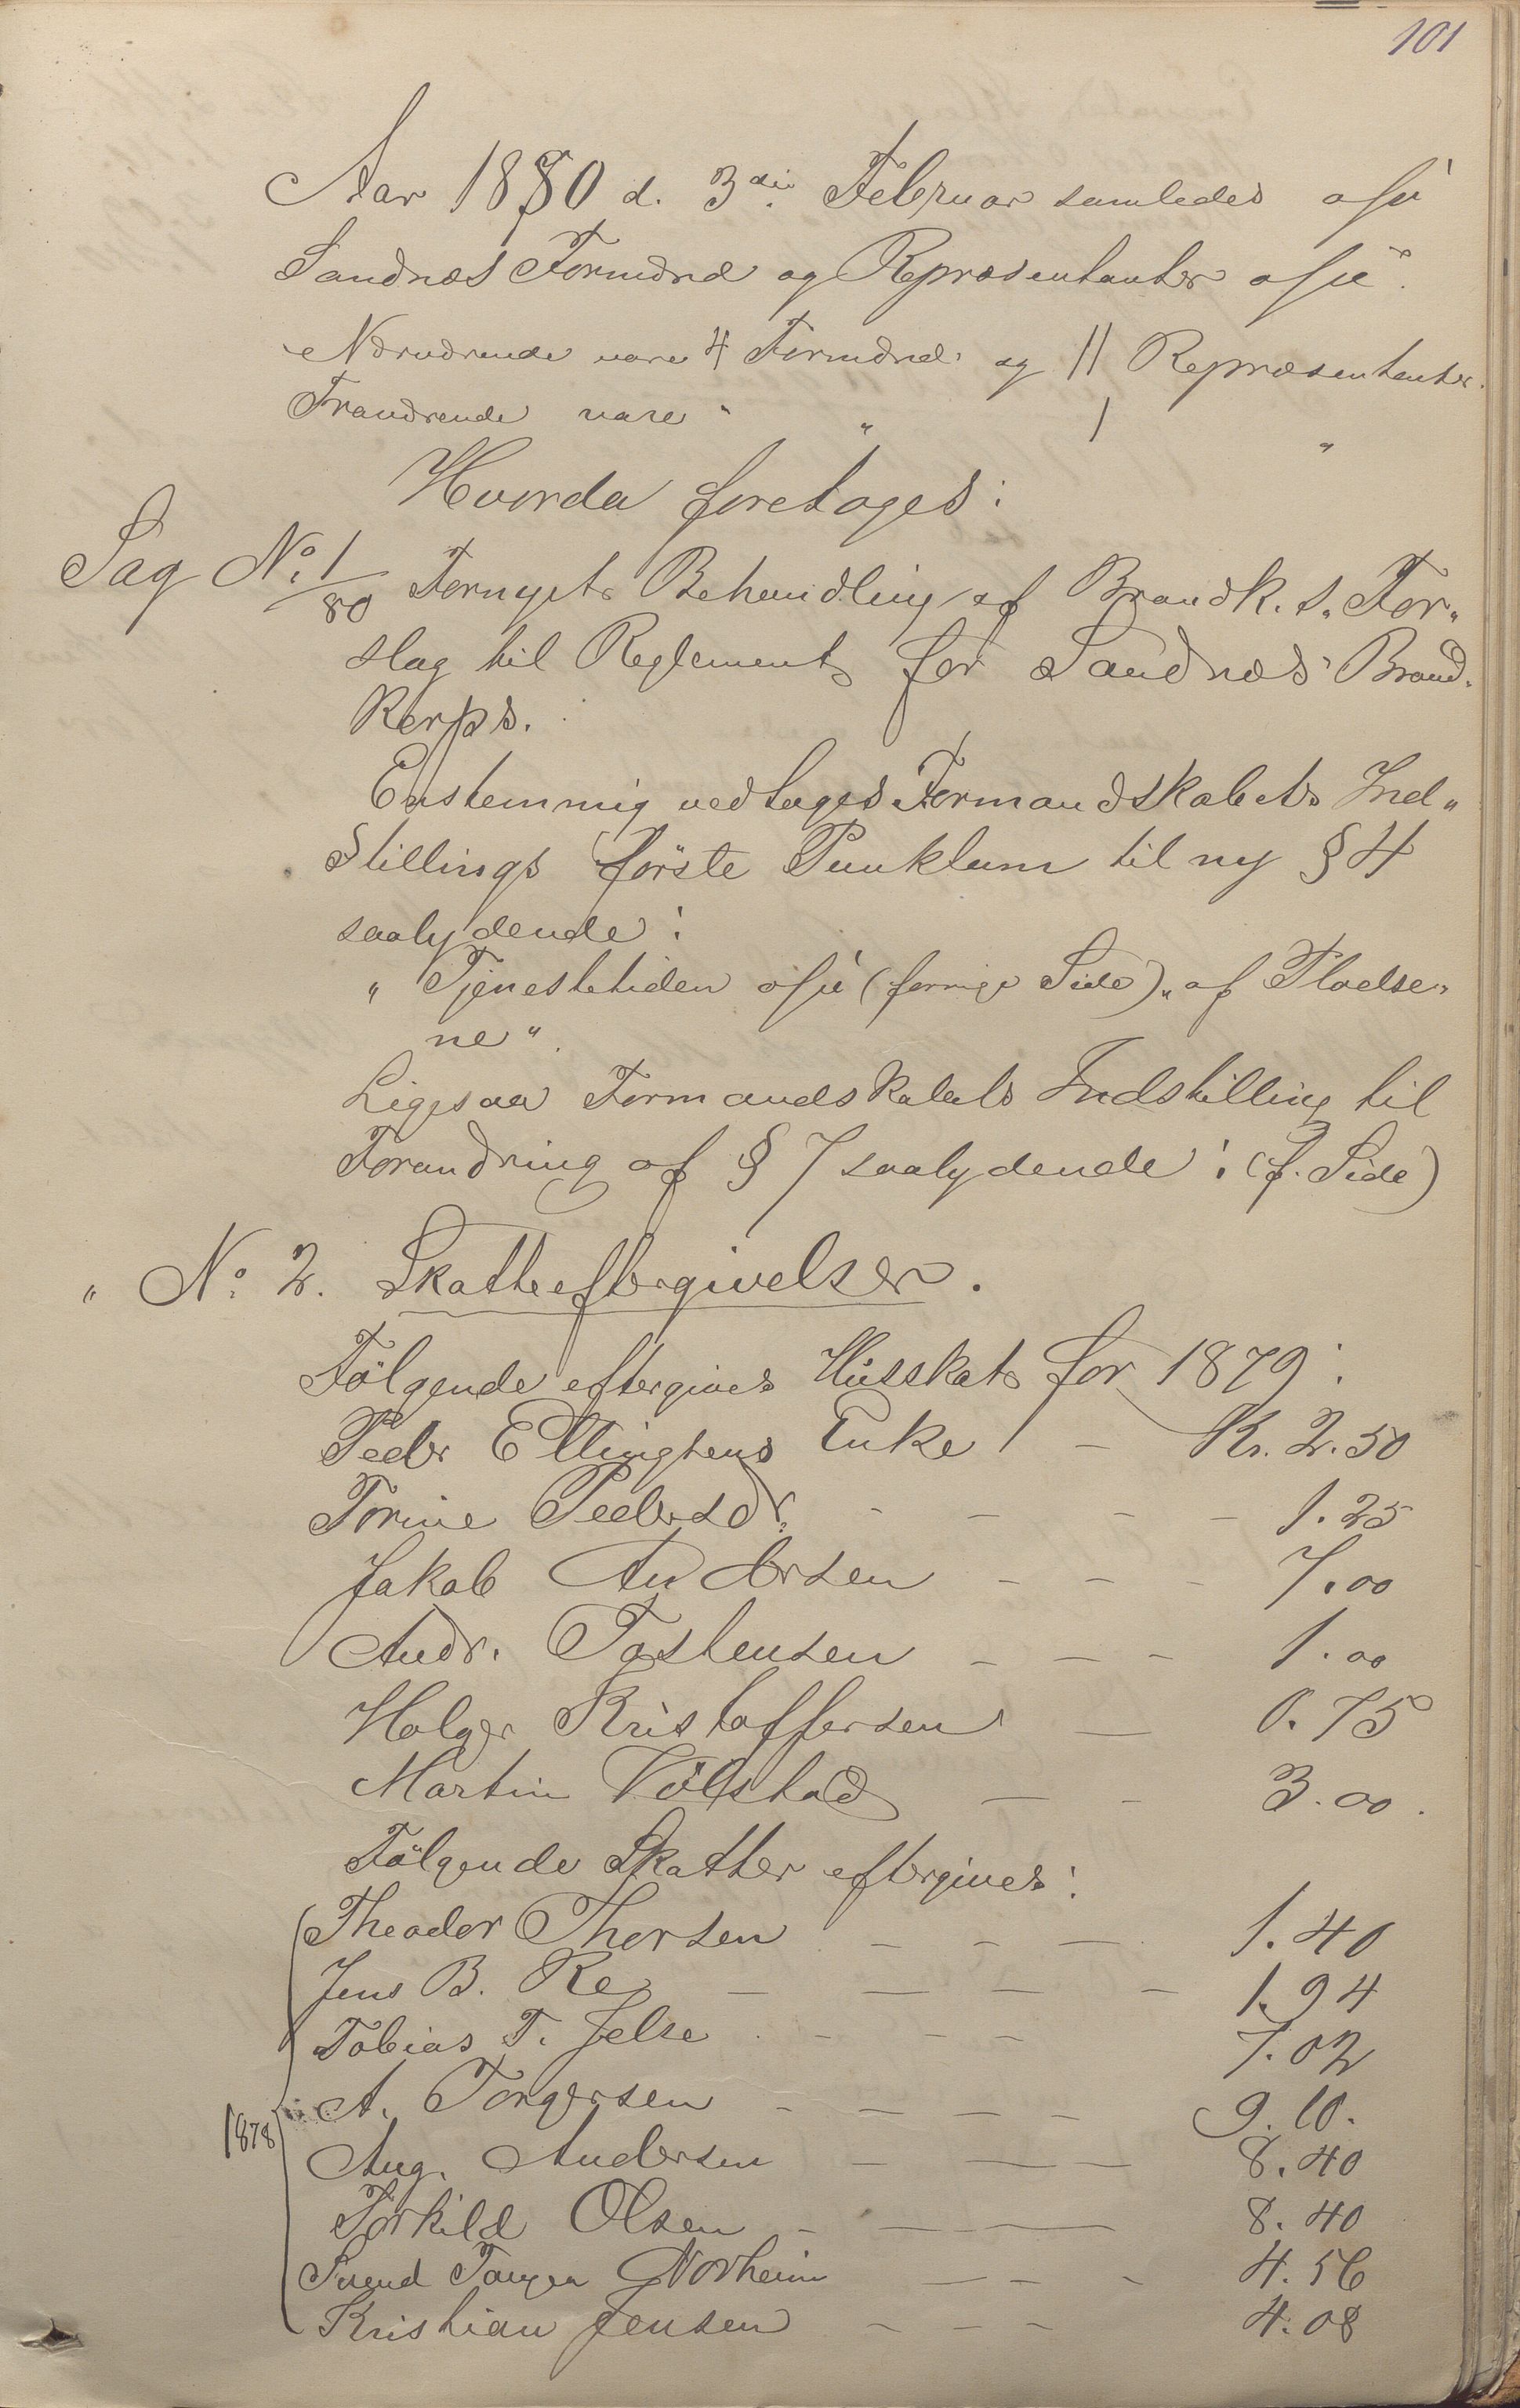 101
Aar 1880 d. 3die Februar samledes
Sandnæs Formænd og Repræsentanter
Nærværende vare 4 Formænd og 11 Repræsentanter.
Fraværende vare " " 1 "
Hvorda foretoges:
Sag No. 1/80 Fornyet Behandling af Brandk. s. For"
slag til Reglement for Sandnæs Brand"
korps.
Enstemmig vedtoges Formandskabets Ind"
stillings förste Punktum til ny § 4
saalydende:
" Tjenestetiden (forrige Side) " af
ne".
Ligesaa Formandskabets Indstilling til
Forandring af § 7 saalydende: (f. Side)
" No. 2. Skatteeftergivelser.
Fölgende eftergives Husskat for 1879:
Peder Ellingsens Enke - Kr. 2.50
Torine Pedersdr. - - - - 1.25
Jakob Andersen - - - 7.00
Andr. Tostensen - - - 1.00
Holger Kristoffersen - 0.75
Martin Völstad - - 3.00.
Fölgende Skatter eftergives:
Theodor Thorsen - - - 1.40
Jens B. Re - - - - 1.94
Tobias T. Jelse - - - 7.02
A. Torgersen - - - - 9.10.
1878 Aug. Andersen - - - 8.40
Torkild Olsen - - - 8.40
Svend Norheim - - - 4.56
Kristian Jensen - - - 4.08